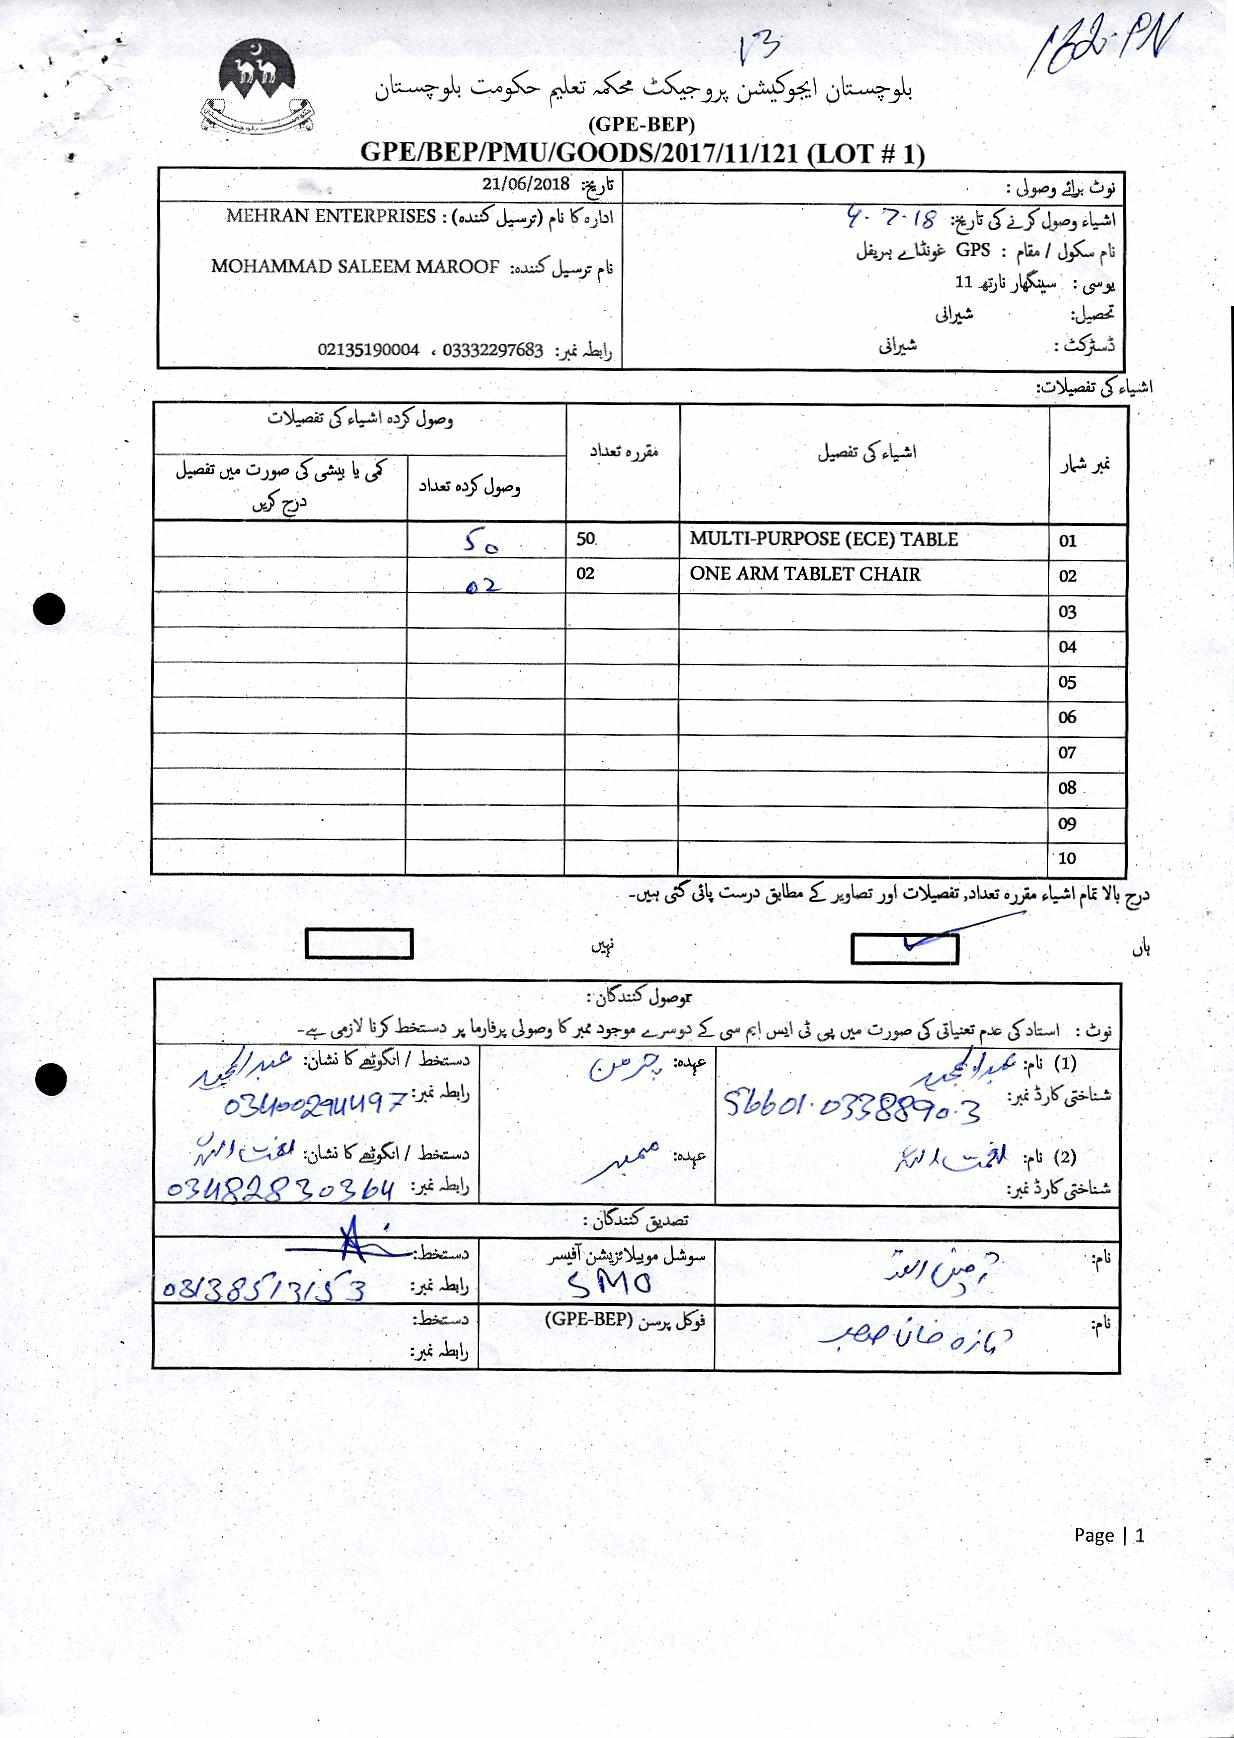 13
بلوچستان ایجوکیشن پروجیکٹ محکمہ تعلیم حکومت بلوچستان
(GPE-BEP)
GPE/BEP/PMU/GOODS/2017/11/121 (LOT # 1)
نوٹ برائے وصولی :
تاریخ: 21/06/2018
اشیاء وصول کرنے کی تاریخ: 4-7-18
ادارہ کا نام (ترسیل کنندہ) : MEHRAN ENTERPRISES
نام سکول / مقام : GPS غونڈاے ہریفل
نام ترسیل کنندہ: MOHAMMAD SALEEM MAROOF
یوسی : سینگھار نارتھ 11
تحصیل: شیرانی
ڈسٹرکٹ : شیرانی
رابطہ نمبر: 03332297683 ، 02135190004
اشیاء کی تفصیلات:
نمبر شمار
اشیاء کی تفصیل
مقررہ تعداد
وصول کردہ اشیاء کی تفصیلات
وصول کردہ تعداد
کمی یا بیشی کی صورت میں تفصیل درج کریں
01 MULTI-PURPOSE (ECE) TABLE 50. 50
02 ONE ARM TABLET CHAIR 02 02
03
04
05
06
07
08
09
10
درج بالا تمام اشیاء مقررہ تعداد, تفصیلات اور تصاویر کے مطابق درست پائی گئی ہیں۔
ہاں نہیں
وصول کنندگان :
نوٹ : استاد کی عدم تعیناتی کی صورت میں پی ٹی ایس ایم سی کے دوسرے موجود ممبر کا وصولی پرفارما پر دستخط کرنا لازمی ہے۔
(1) نام: عبدالمجید عہدہ: چرمن دستخط / انگوٹھے کا نشان: عبدالمجید
شناختی کارڈ نمبر: 56601-0338890-3 رابطہ نمبر: 03400294497
(2) نام: نعمت اللہ عہدہ: ممبر دستخط / انگوٹھے کا نشان: نعمت اللہ
شناختی کارڈ نمبر: رابطہ نمبر: 03482830364
تصدیق کنندگان :
نام: سوشل موبیلائزیشن آفیسر دستخط:
SMO رابطہ نمبر: 03138513153
نام: فوکل پرسن (GPE-BEP) دستخط:
رابطہ نمبر:
Page | 1